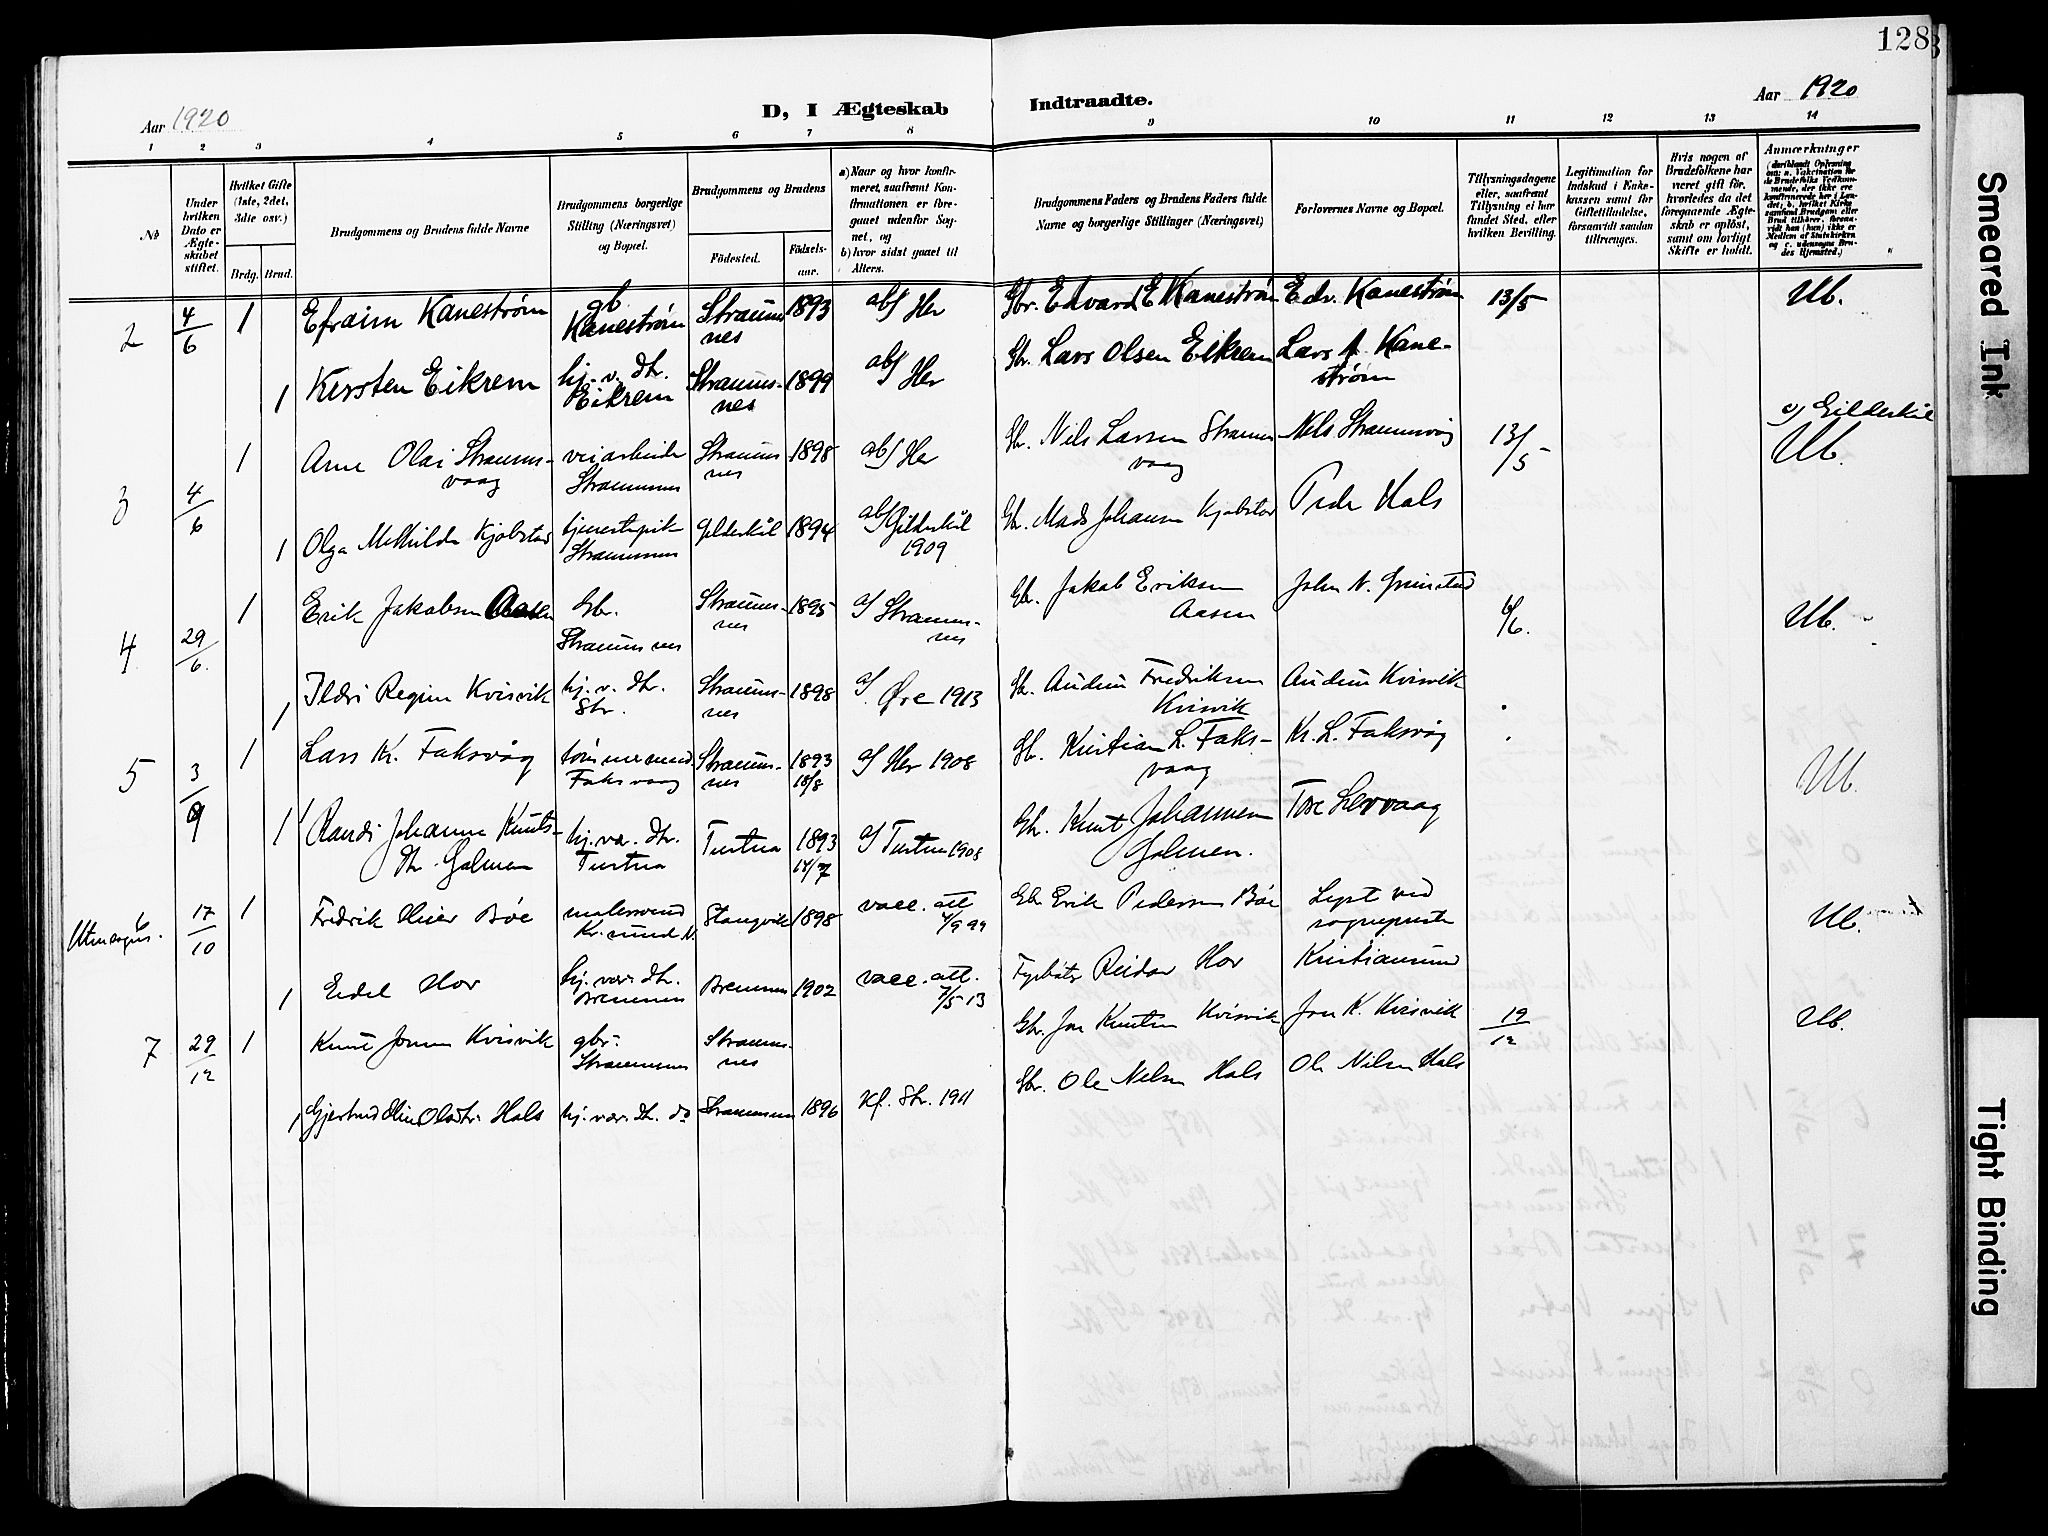 128
Aar 1920
D, I Ægteskab Indtraadte.
Aar 1920
1 2 3 4 5 6 7 8 9 10 11 12 13 14
No
Under hvilken Dato er Ægteskabet stiftet.
Hvilket Gifte (1ste, 2det, 3die osv.)
Brdg. Brud.
Brudgommens og Brudens fulde Navne
Brudgommens borgerlige Stilling (Næringsvei) og Bopæl.
Brudgommens og Brudens
Födested.
Födselsaar.
a) Naar og hvor konfirmeret, saafremt Konfirmationen er foregaaet udenfor Sognet, og
b) hvor sidst gaaet til Alters.
Brudgommens Faders og Brudens Faders fulde Navne og borgerlige Stillinger (Næringsvei)
Forlovernes Navne og Bopæl.
Tillysningsdagene eller, saafremt Tillysning ei har fundet Sted, efter hvilken Bevilling.
Legitimation for Indskud i Enkekassen samt for Giftetilladelse, forsaavidt saadan tiltrænges.
Hvis nogen af Brudefolkene har været gift för, hvorledes da det foregaaende Ægteskab er oplöst, samt om lovligt Skifte er holdt.
Anmærkninger
2 4/6 1 Efraim Kanestrøm gb Kanestrøm Straumsnes 1893 abf Her Gbr. Edvard E Kanestrøm Edv. Kanestrøm 13/5 Ub.
1 Kirsten Eikrem hj. v. dtr. Eikrem Straumsnes 1899 abf Her Gbr. Lars Olsen Eikrem Lars A. Kanestrøm
3 4/6 1 Arne Olai Straumsvaag veiarbeider Straumsnes Straumsnes 1898 abf Her Gb. Nils Larsen Straumsvaag Nils Straumsvåg 13/5 c) Gildeskål Ub.
1 Olga Mathilde Kjøbstad tjenestepik Straumsnes Gildeskål 1894 abf Gildeskål 1909 Gb. Mads Johansen Kjøbstad Peder Hals
4 29/6 1 Erik Jakobsen Aasen Gbr. Straumsnes Straumsnes 1895 af Straumsnes Gb. Jakob Eriksen Aasen John N. Grimstad 6/6. Ub.
1 Ildri Regine Kvisvik hj. v. dtr. Str. Straumsnes 1898 af Øre 1913 Gb. Audun Fredriksen Kvisvik Audun Kvisvik
5 3/9 1 Lars Kr. Faksvåg tømmermand Faksvaag Straumsnes 1893 18/8 af Her 1908 Gb. Kristian L. Faksvaag Kr. L. Faksvåg Ub.
1 Randi Johanne Knutsdtr. Golmen hj. vær. dtr. Tustna Tustna 1893 af Tustna 1908 Gb. Knut Johannesen Golmen. Tore Lervaag
Utensogns. 6 17/10 1 Fredrik Meier Bøe malersvend Kr.sund N. Stangvik 1898 vacc. att 4/9 99 Gb Erik Pedersen Bøe Lyst ved sogneprest Ub.
1 Eidel Hov hj. vær. dtr. Bremsnes Bremsnes 1902 vacc. att. 7/5 13 Reidar Hov Kristiansund
7 29/12 1 Knut Jonsen Kvisvik gbr. Straumsnes Straumsnes Gbr. Jon Knutsen Kvisvik Jon K. Kvisvik 19/12 Ub.
1 Gjertrud Elin Olsdtr. Hals hj. vær. dtr. do Straumsnes 1896 Kf. Str. 1911 Gbr. Ole Nilsen Hals Ole Nilsen Hals
Smeared Ink
Tight Binding